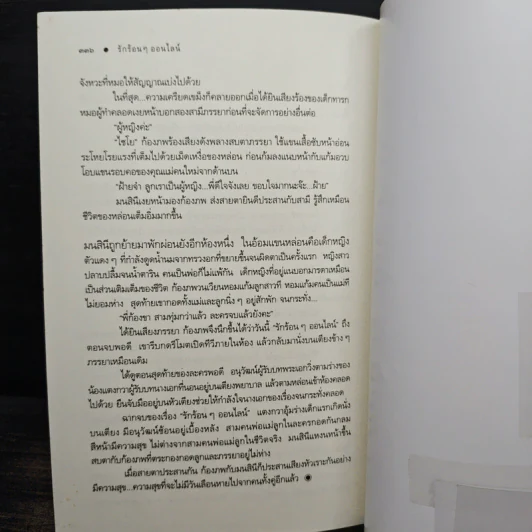 ๓๓๖ ● รักร้อนๆ ออนไลน์
จังหวะที่หมอให้สัญญาณเบ่งไปด้วย
ในที่สุด...ความเครียดเขม็งก็คลายออกเมื่อได้ยินเสียงร้องของเด็กทารก
หมอผู้ทำคลอดเงยหน้าบอกสองสามีภรรยาก่อนที่จะจัดการอย่างอื่นต่อ
“ผู้หญิงค่ะ”
“ไชโย” ก้องภพร้องเสียงดังพลางสบตาภรรยา ใช้แขนเสื้อซับหน้าอ่อน
ระโหยโรยแรงที่เต็มไปด้วยเม็ดเหงื่อของหล่อน ก่อนก้มลงแนบหน้ากับแก้มอวบ
โอบแขนรอบคอของคุณแม่คนใหม่จากด้านบน
“ฝ้ายจ๋า ลูกเราเป็นผู้หญิง...พี่ดีใจจังเลย ขอบใจมากนะจ๊ะ...ฝ้าย”
มนสินีเงยหน้ามองก้องภพ ส่งสายตายินดีประสานกับสามี รู้สึกเหมือน
ชีวิตของหล่อนเต็มอิ่มมากขึ้น
มนสินีถูกย้ายมาพักผ่อนยังอีกห้องหนึ่ง ในอ้อมแขนหล่อนคือเด็กหญิง
ตัวแดงๆ ที่กำลังดูดน้ำนมจากทรวงอกที่ขยายขึ้นจนผิดตาเป็นครั้งแรก หญิงสาว
ปลาบปลื้มจนน้ำตาริน คนเป็นพ่อก็ไม่แพ้กัน เด็กหญิงที่อยู่แนบอกมารดาเหมือน
เป็นส่วนเติมเต็มของชีวิต ก้องภพวนเวียนหอมแก้มลูกสาวที หอมแก้มคนเป็นแม่ที
ไม่ยอมห่าง สุดท้ายเขากอดทั้งแม่และลูกนิ่งๆ อยู่สักพัก จนกระทั่ง...
“พี่ก้องขา สามทุ่มกว่าแล้ว ละครจบแล้วยังคะ”
ได้ยินเสียงภรรยา ก้องภพจึงนึกขึ้นได้ว่าวันนี้ “รักร้อนๆ ออนไลน์” ถึง
ตอนจบพอดี เขารีบกดรีโมตเปิดทีวีภายในห้อง แล้วกลับมานั่งบนเตียงข้างๆ
ภรรยาเหมือนเดิม
ได้ดูตอนสุดท้ายของละครพอดี อนุวัฒน์ผู้รับบทพระเอกวิ่งตามร่างของ
น้องแตงกวาผู้รับบทนางเอกที่นอนอยู่บนเตียงพยาบาล แล้วตามหล่อนเข้าห้องคลอด
ไปด้วย ยืนจับมืออยู่บนหัวเตียงช่วยให้กำลังใจนางเอกของเรื่องจนกระทั่งคลอด
ฉากจบของเรื่อง “รักร้อนๆ ออนไลน์” แตงกวาอุ้มร่างเด็กแรกเกิดนั่ง
บนเตียง มีอนุวัฒน์ซ้อนเบื้องหลัง สามคนพ่อแม่ลูกในละครกอดกันกลม
สีหน้ามีความสุข ไม่ต่างจากสามคนพ่อแม่ลูกในชีวิตจริง มนสินีแหงนหน้าขึ้น
สบตากับก้องภพที่ตระกองกอดลูกและภรรยาอยู่ไม่ห่าง
เมื่อสายตาประสานกัน ก้องภพกับมนสินีก็ประสานเสียงหัวเราะกันอย่าง
มีความสุข...ความสุขที่จะไม่มีวันเลือนหายไปจากคนทั้งคู่อีกแล้ว ●